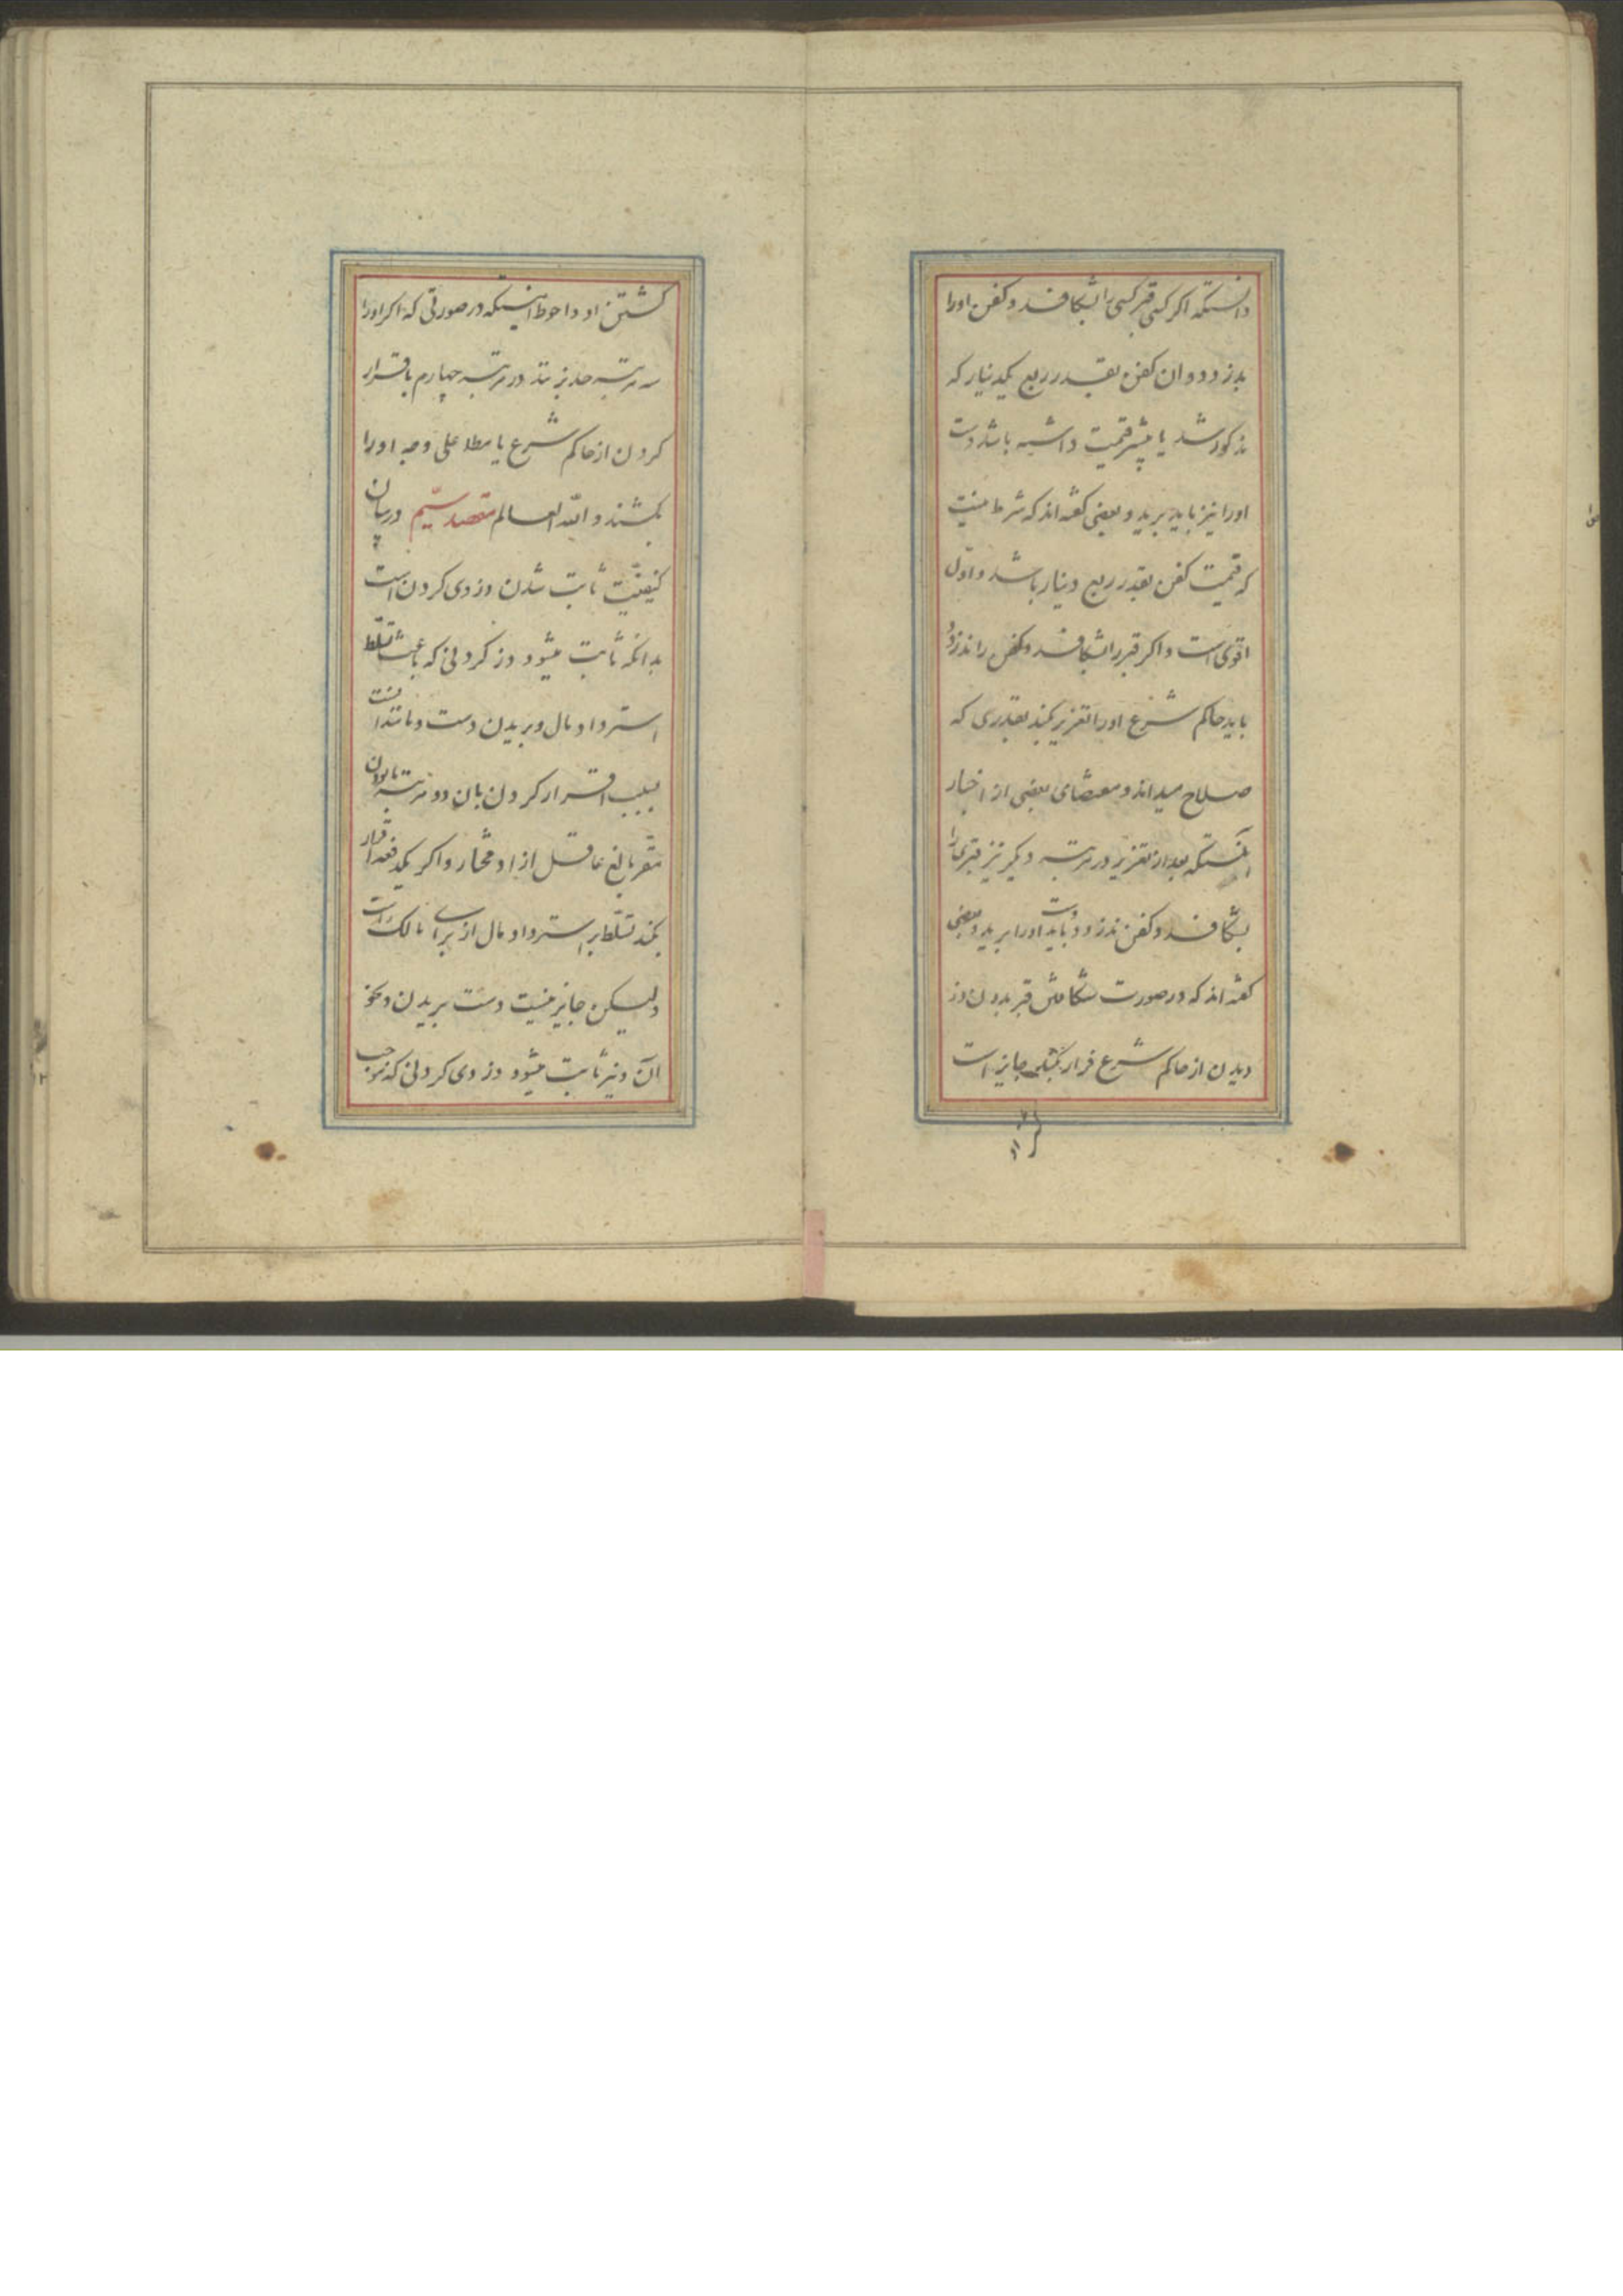 دانستکه اکر کسی قبر کسی را بشکافد و کفن اورا
بدزدد و ان کفن بقدر ربع یکدینار که
مذکور شد یا بیشتر قیمت داشته باشد دست
اورا نیز باید برید و بعضی کفته اند که شرط نیست
که قیمت کفن بقدر ربع دینار باشد و اول
اقوی است و اکر قبر را بشکافد و کفن را ندزدد
باید حاکم شرع اورا تعزیر بکند بقدری که
صلاح میداند و مقتضای بعضی از اخبار
آنستکه بعد از تعزیر در مرتبه دیکر نیز قبری را
بشکافد و کفن ندزدد باید دست اورا برید و بعضی
کفته اند که در صورت شکافتن قبر بدون دز
دیدن از حاکم شرع فرار بکند جایز است
کشتن او و احوط اینستکه در صورتی که اکر اورا
سه مرتبه حد بزنند در مرتبه چهارم با قرار
کردن از حاکم شرع یا مطلا علی وجه اورا
بکشند و الله العالم مقصد سیّم در بیان
کیفیّت ثابت شدن دزدی کردن است
بدانکه ثابت میشود دزد کردنی که باعث تسلّط
استرداد مال و بریدن دست و مانند انست
بسبب اقرار کردن بان دو مرتبه با بودن
مقر بالغ عاقل ازاد مختار و اکر یکدفعه اقرار
بکند تسلّط بر استرداد مال از برای مالک است
ولیکن جایز نیست دست بریدن و نحو
آن و نیز ثابت میشود دزدی کردنی که موجب